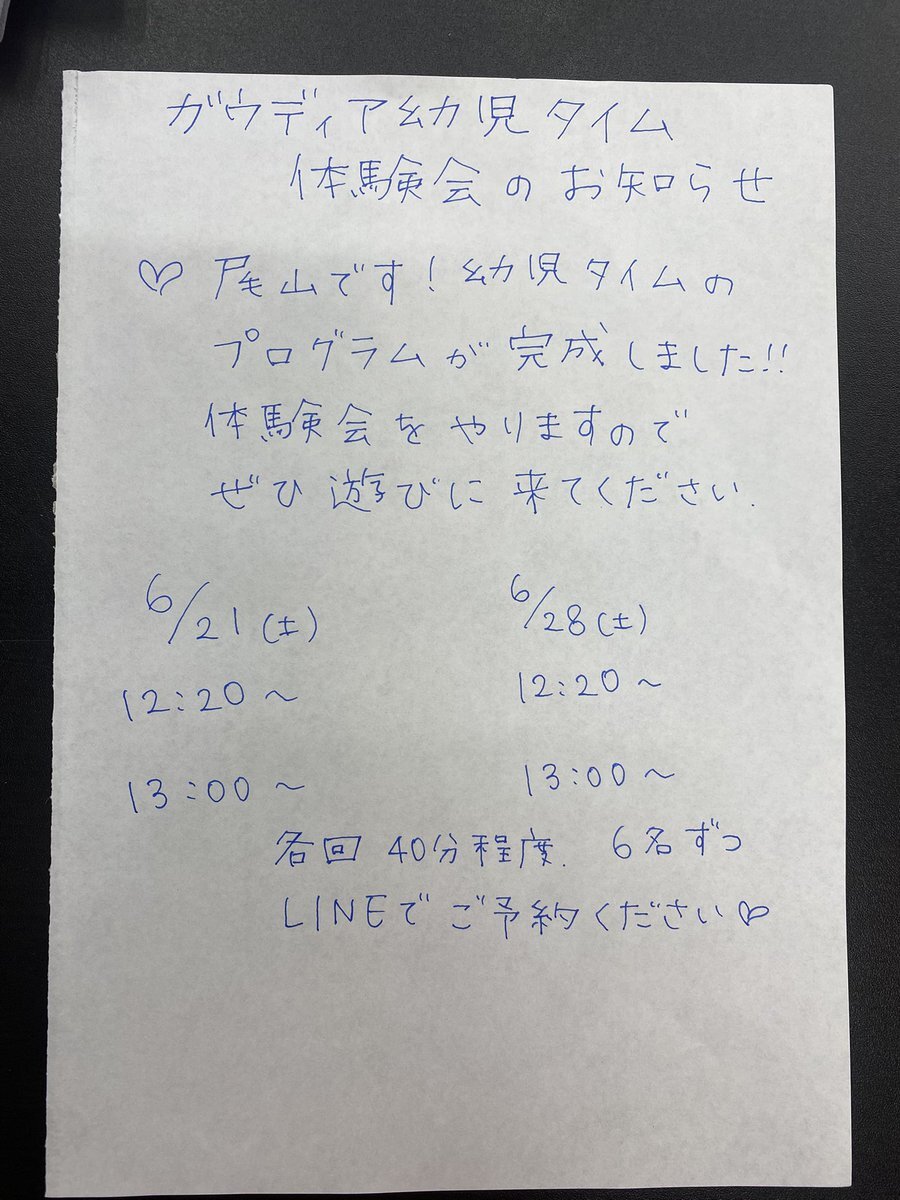 ガウディア幼児タイム
体験会のお知らせ
♡ 尾山です！幼児タイムの
プログラムが完成しました!!
体験会をやりますので
ぜひ遊びに来てください.
6/21(土)
12:20～
13:00～
6/28(土)
12:20～
13:00～
各回 40分程度. 6名ずつ
LINEでご予約ください♡